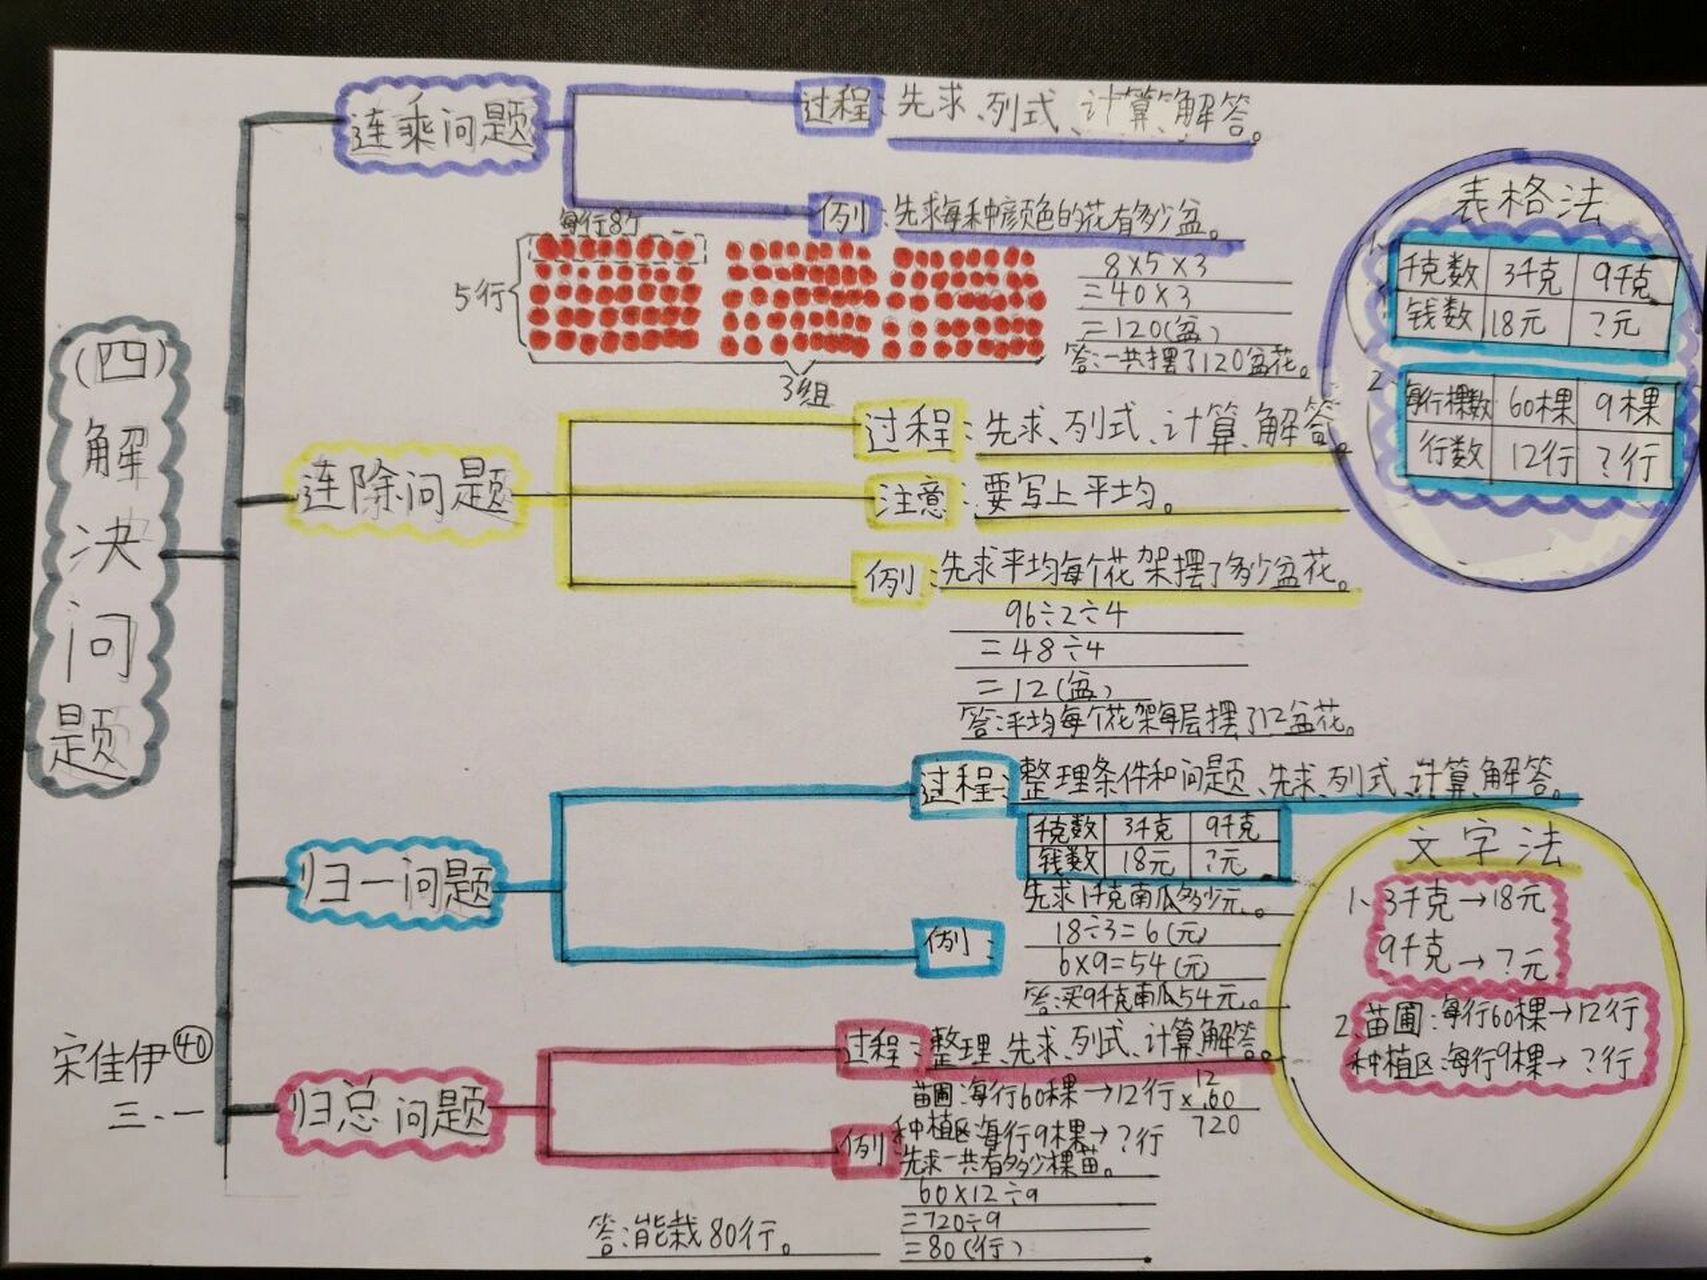 (四)解决问题
连乘问题
过程:先求、列式、计算、解答。
例:先求每种颜色的花有多少盆。
每行8个
5行
3组
8×5×3
=40×3
=120(盆)
答:一共摆了120盆花。
连除问题
过程:先求、列式、计算、解答。
注意:要写上平均。
例:先求平均每个花架摆了多少盆花。
96÷2÷4
=48÷4
=12(盆)
答:平均每个花架每层摆了12盆花。
归一问题
过程:整理条件和问题、先求、列式、计算、解答。
千克数 3千克 9千克
钱数 18元 ?元
例:
先求1千克南瓜多少元。
18÷3=6(元)
6×9=54(元)
答:买9千克南瓜54元。
归总问题
过程:整理、先求、列式、计算、解答。
苗圃:每行60棵→12行
12
×60
720
例:
种植区:每行9棵→?行
先求一共有多少棵苗。
60×12÷9
=720÷9
=80(行)
答:能栽80行。
表格法
1、
千克数 3千克 9千克
钱数 18元 ?元
2、
每行棵数 60棵 9棵
行数 12行 ?行
文字法
1、3千克→18元
9千克→?元
2、苗圃:每行60棵→12行
种植区:每行9棵→?行
宋佳伊㊵
三、一